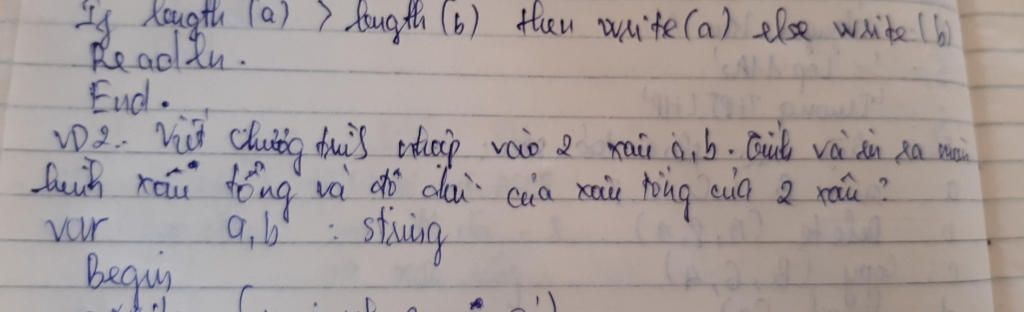 If length (a) > length (b) then write (a) else write (b)
Readln.
End.
VD2. Viết chương trình nhập vào 2 xâu a, b. Tính và in ra màn
hình xâu tổng và độ dài của xâu tổng của 2 xâu?
var a,b : string
Begin